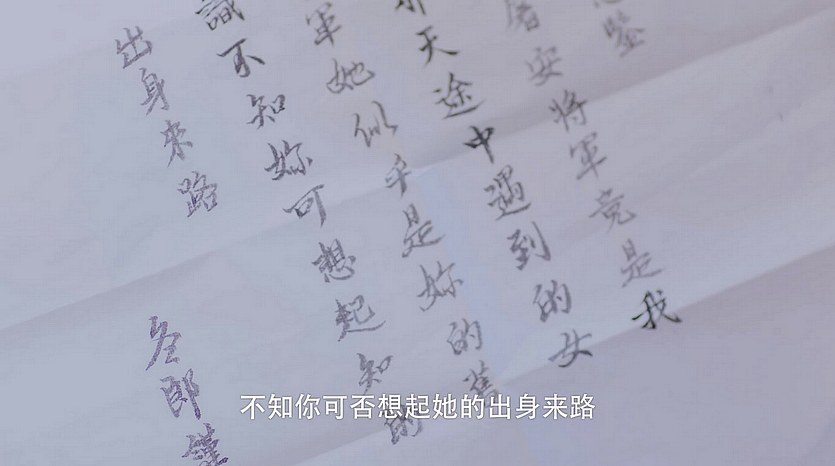 鑒
安將軍竟是我
天途中遇到的女
軍她似乎是妳的舊
識不知妳可想起知的
出身來路
冬郎謹
不知你可否想起她的出身来路